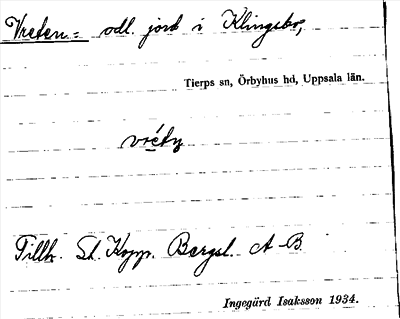 Vreten = odl. jord i Klingsbo,
Tierps sn, Örbyhus hd, Uppsala län.
vre̱tn
Tillh. St. Kopp. Bergsl. A-B
Ingegärd Isaksson 1934.